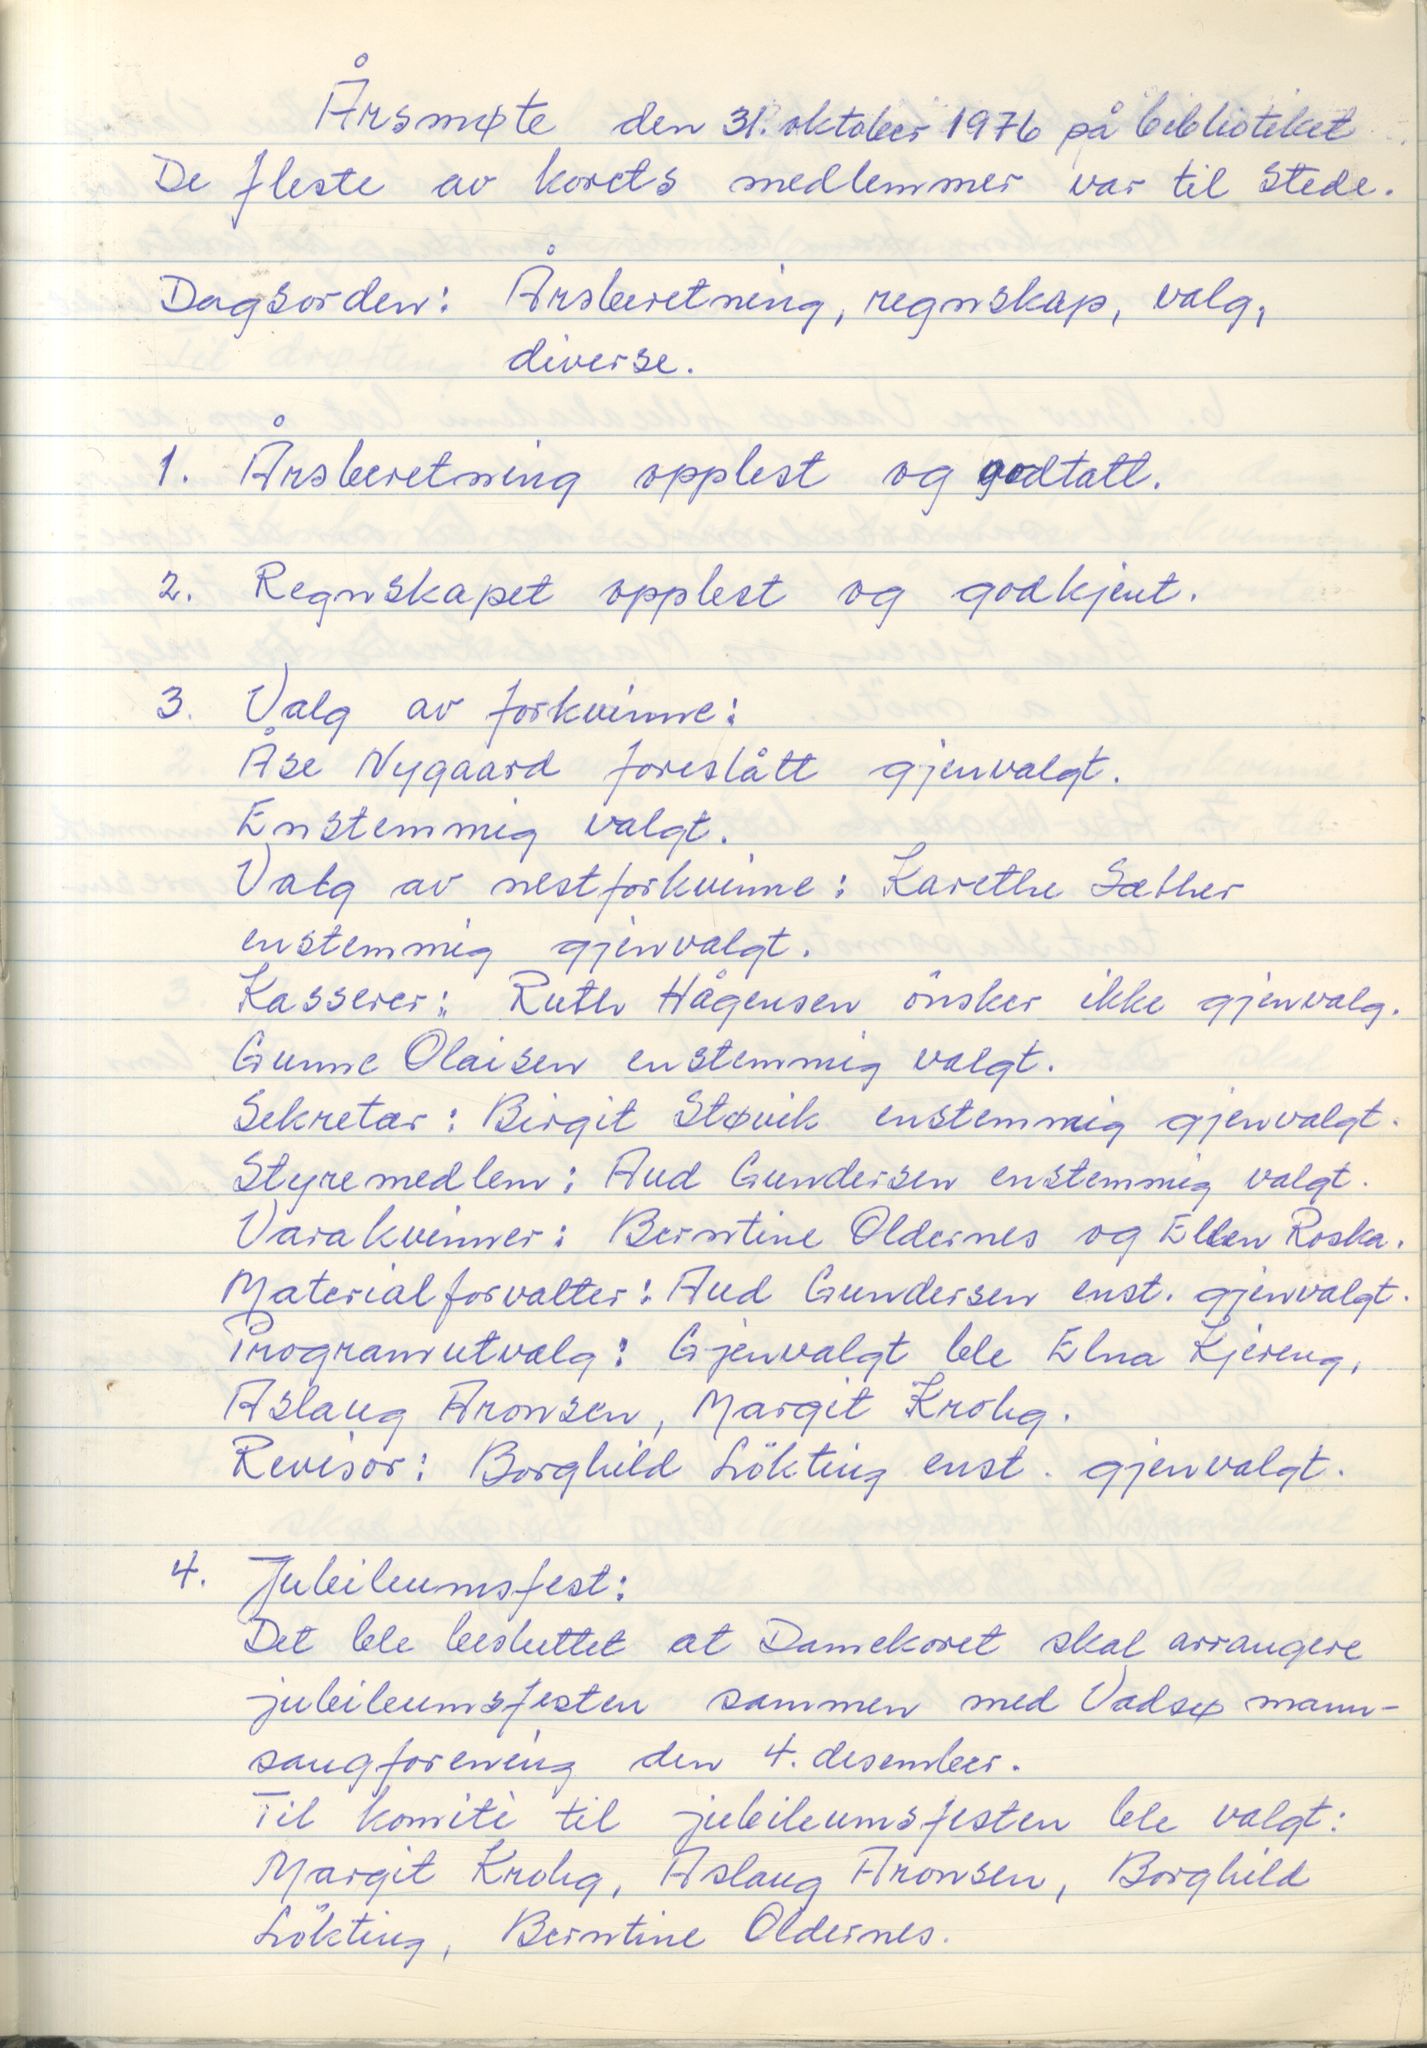 Årsmøte den 31. oktober 1976 på biblioteket
De fleste av korets medlemmer var til stede.
Dagsorden: Årsberetning, regnskap, valg,
diverse.
1. Årsberetning opplest og godtatt.
2. Regnskapet opplest og godkjent.
3. Valg av forkvinne:
Åse Nygaard foreslått gjenvalgt.
Enstemmig valgt.
Valg av nestforkvinne: Karethe Sæther
enstemmig gjenvalgt.
Kasserer: Ruth Hågensen önsker ikke gjenvalg.
Gunne Olaisen enstemmig valgt.
Sekretær: Birgit Støvik enstemmig gjenvalgt.
Styremedlem: Aud Gundersen enstemmig valgt.
Varakvinner: Berntine Oldernes og Ellen Roska.
Materialforvalter: Aud Gundersen enst. gjenvalgt.
Programutvalg: Gjenvalgt ble Elna Kjereng,
Aslaug Aronsen, Margit Krohg.
Revisor: Borghild Lökting enst. gjenvalgt.
4. Jubileumsfest:
Det ble besluttet at Damekoret skal arrangere
jubileumsfesten sammen med Vadsø mann-
sangforening den 4. desember.
Til komité til jubileumsfesten ble valgt:
Margit Krohg, Aslaug Aronsen, Borghild
Lökting, Berntine Oldernes.